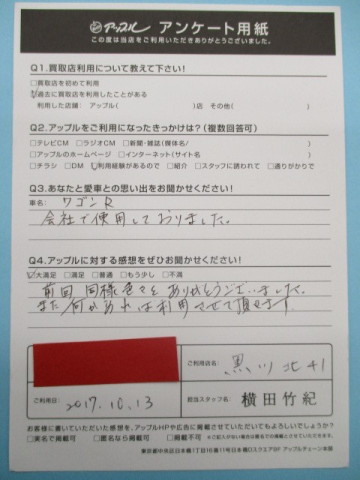 アップル アンケート用紙
この度は当店をご利用いただきありがとうございました。
Q1.買取店利用について教えて下さい!
□買取店を初めて利用
☑過去に買取店を利用したことがある
利用した店舗: アップル( )店 その他( )
Q2.アップルをご利用になったきっかけは?(複数回答可)
□テレビCM □ラジオCM □新聞・雑誌(媒体名/ )
□アップルのホームページ □インターネット(サイト名 )
□チラシ □DM ☑利用経験があるので □紹介 □スタッフに誘われて □通りがかりで
Q3.あなたと愛車との思い出をお聞かせください!
車名: ワゴンR
会社で使用しておりました。
Q4.アップルに対する感想をぜひお聞かせください!
☑大満足 □満足 □普通 □もう少し □不満
前回同様色々とありがとうございました。
また何かあれば利用させて頂きます。
ご利用店名: 黒川北4
ご利用日: 2017.10.13
担当スタッフ名: 横田竹紀
お客様に書いていただいた感想を、アップルHPや広告に掲載してもよろしいでしょうか?
□実名で掲載可 □匿名なら掲載可 □掲載不可 ※ご記入がない場合は匿名での掲載とさせていただきます。
東京都中央区日本橋1丁目16番11号日本橋Dスクエア5F アップルチェーン本部